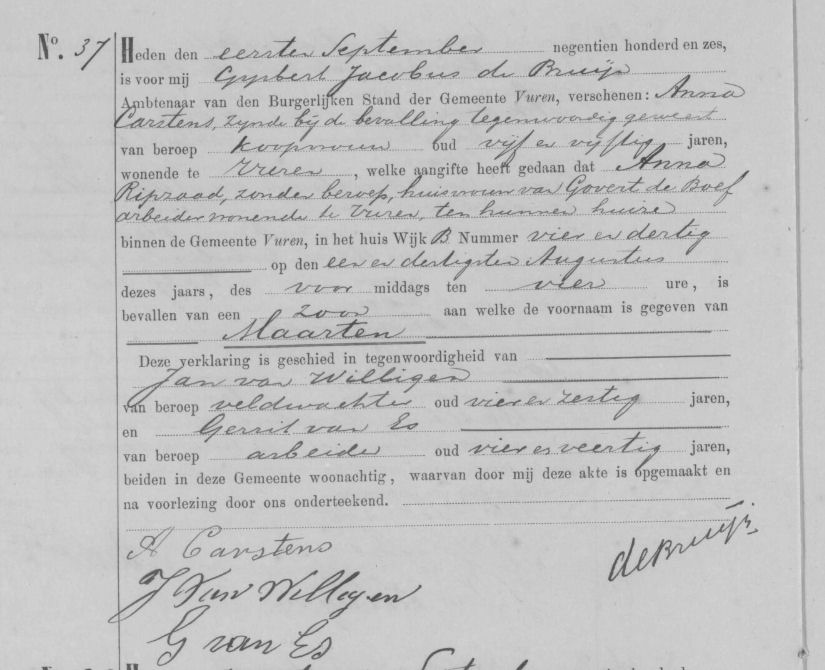 No. 37 Heden den eersten September negentien honderd en zes,
is voor mij Gijsbert Jacobus de Bruijn
Ambtenaar van den Burgerlijken Stand der Gemeente Vuren, verschenen: Anna
Carstens, zijnde bij de bevalling tegenwoordig geweest
van beroep koopvrouw oud vijf en vijftig jaren,
wonende te Vuren, welke aangifte heeft gedaan dat Anna
Ripzaad, zonder beroep, huisvrouw van Govert de Boef
arbeider wonende te Vuren, ten hunnen huize
binnen de Gemeente Vuren, in het huis Wijk B Nummer vier en dertig
op den een en dertigsten Augustus
dezes jaars, des voor middags ten vier ure, is
bevallen van een zoon aan welke de voornaam is gegeven van
Maarten
Deze verklaring is geschied in tegenwoordigheid van
Jan van Willigen
van beroep veldwachter oud vier en zestig jaren,
en Gerrit van Es
van beroep arbeider oud vier en veertig jaren,
beiden in deze Gemeente woonachtig, waarvan door mij deze akte is opgemaakt en
na voorlezing door ons onderteekend.
A Carstens
deBruijn.
J Van Willegen
G van Es